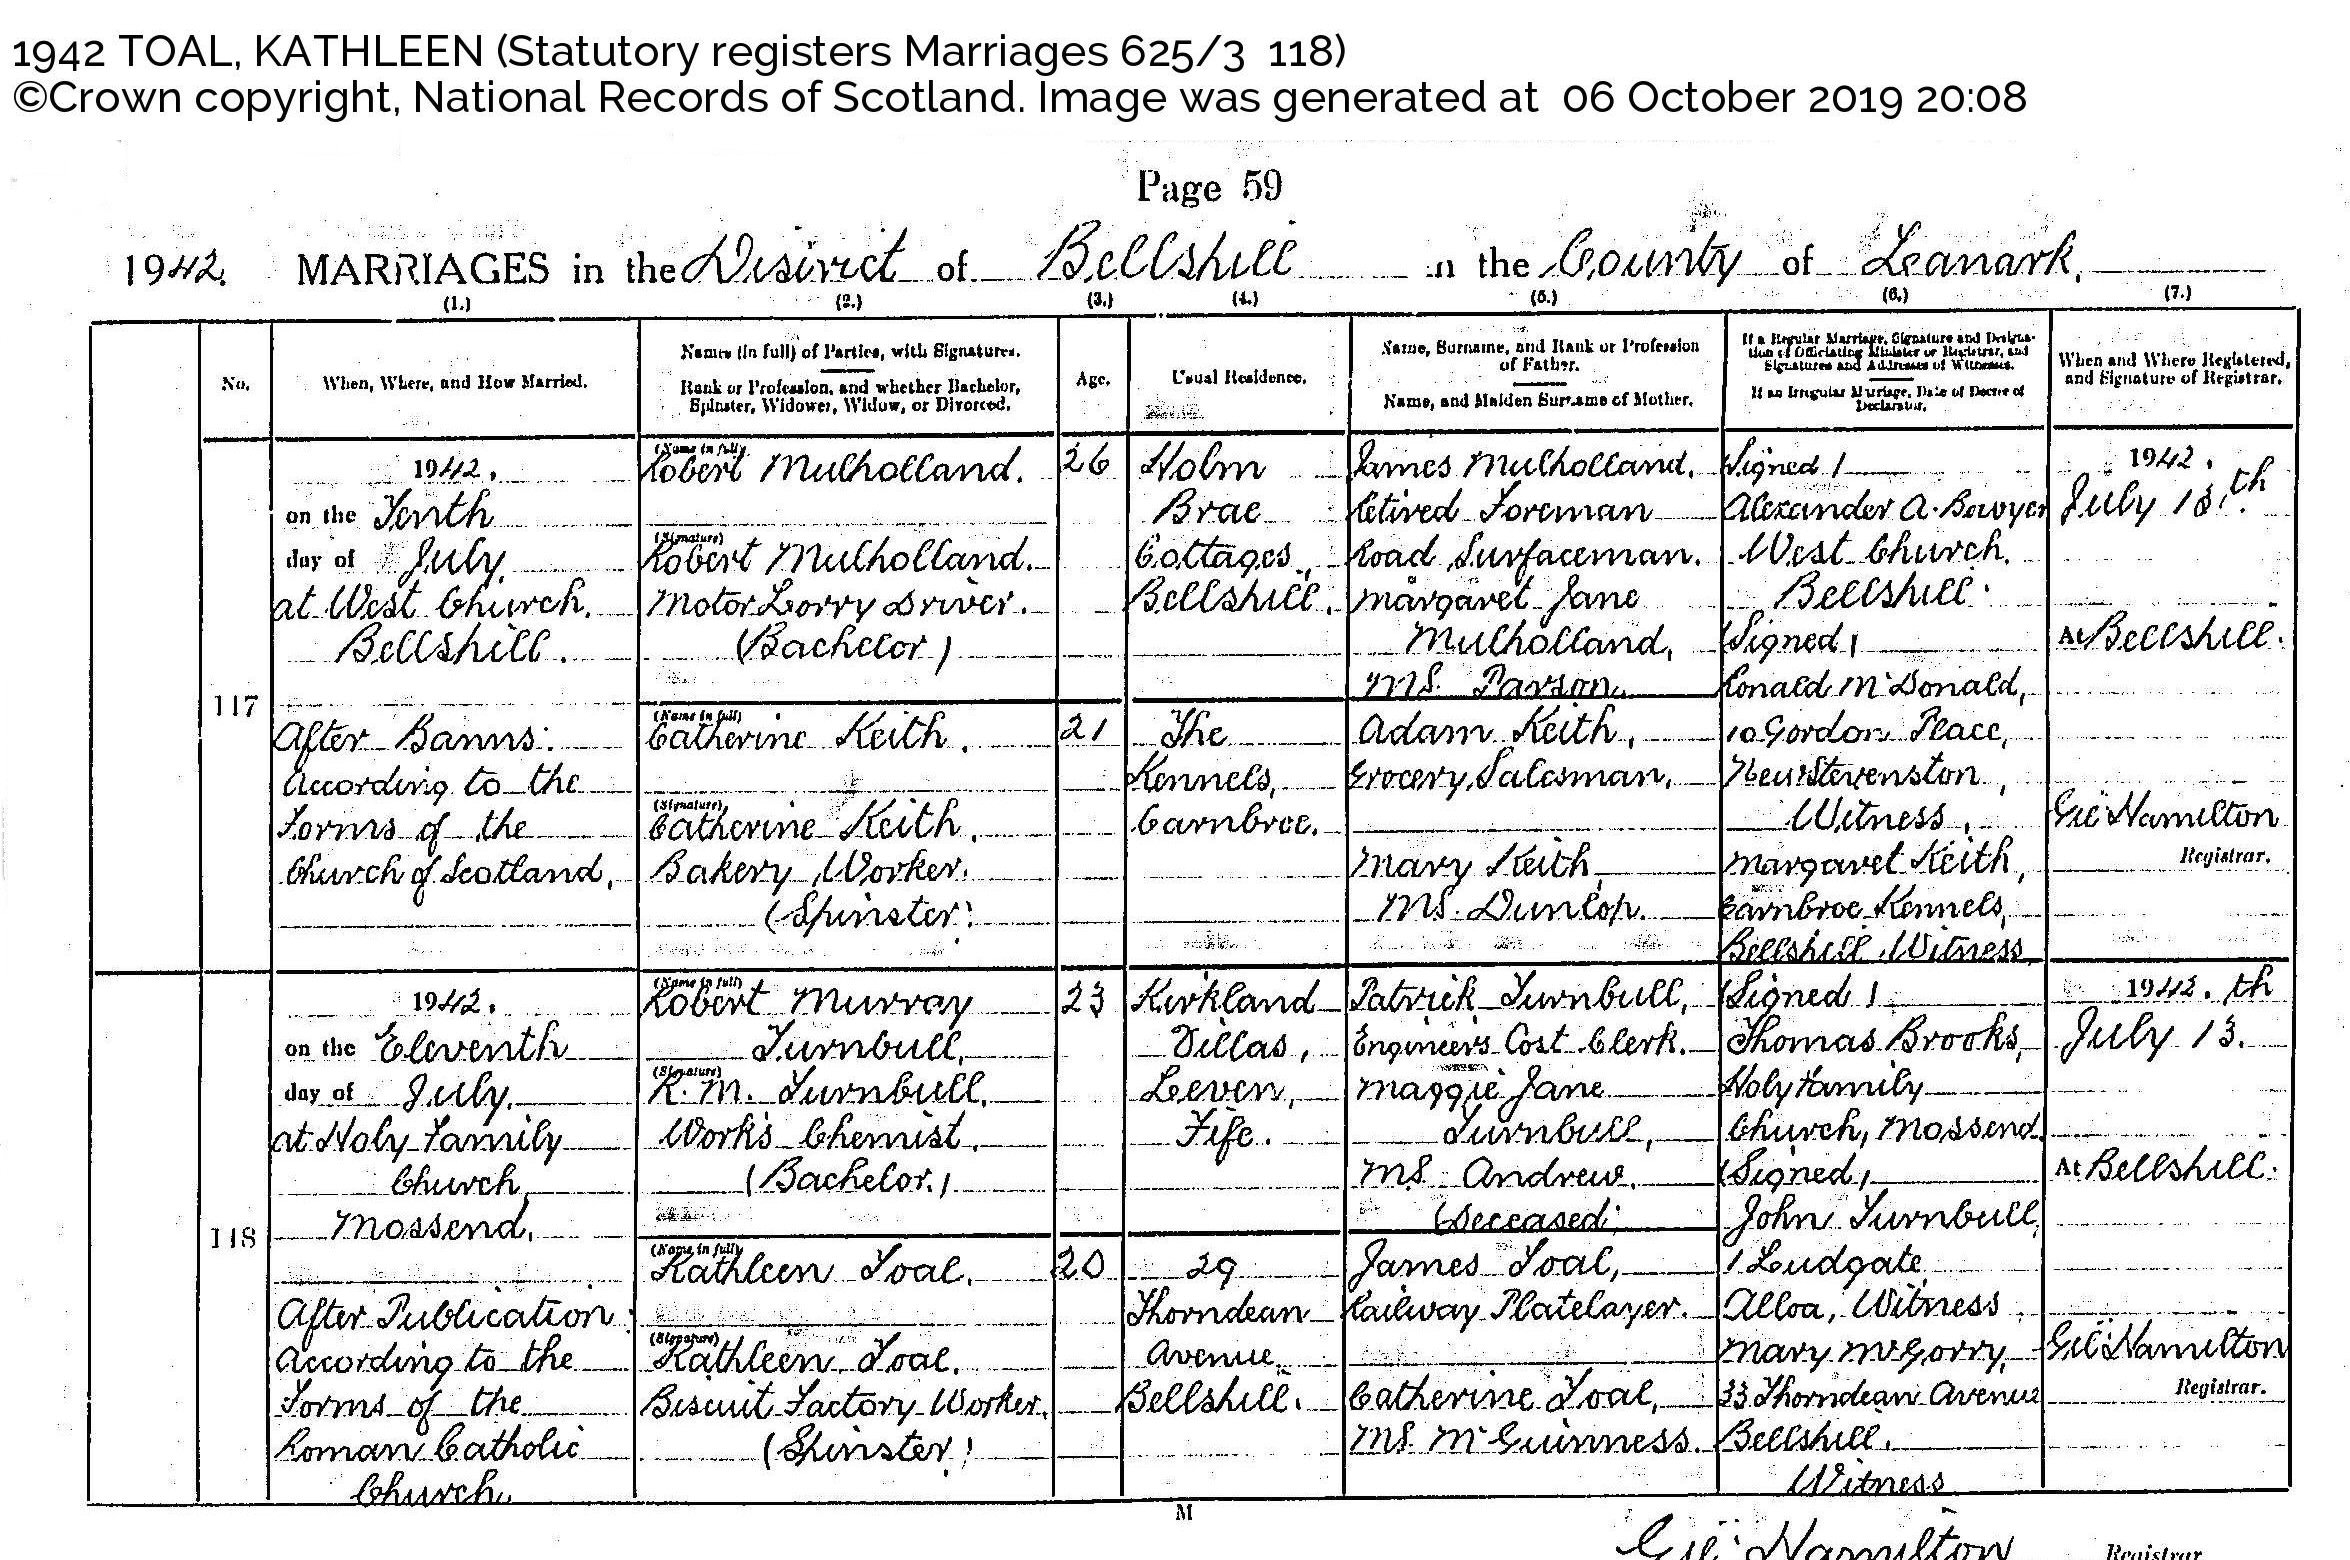 1942 TOAL, KATHLEEN (Statutory registers Marriages 625/3 118)
©Crown copyright, National Records of Scotland. Image was generated at 06 October 2019 20:08
Page 59
1942. MARRIAGES in the District of Bellshill in the County of Lanark.
(1.) (2.) (3.) (4.) (5.) (6.) (7.)
No.
When, Where, and How Married.
Names (in full) of Parties, with Signatures.
Rank or Profession, and whether Bachelor,
Spinster, Widower, Widow, or Divorced.
Age.
Usual Residence.
Name, Surname, and Rank or Profession
of Father.
Name, and Maiden Surname of Mother.
If a Regular Marriage, Signature and Designa-
tion of Officiating Minister or Registrar, and
Signatures and Addresses of Witnesses.
If an Irregular Marriage, Date of Decree of
Declarator.
When and Where Registered,
and Signature of Registrar.
117
1942.
on the Tenth
day of July.
at West Church.
Bellshill.
After Banns.
According to the
Forms of the
Church of Scotland,
(Name in full)
Robert Mulholland.
(Signature)
Robert Mulholland.
Motor Lorry Driver.
(Bachelor)
26
Holm
Brae
Cottages,
Bellshill.
James Mulholland.
Retired Foreman
Road Surfaceman.
Margaret Jane
Mulholland,
MS. Parson.
(Name in full)
Catherine Keith.
(Signature)
Catherine Keith.
Bakery Worker.
(Spinster)
21
The
Kennels,
Carnbroe.
Adam Keith,
Grocery Salesman.
Mary Keith,
MS. Dunlop.
(Signed)
Alexander A. Bowyer
West Church.
Bellshill.
(Signed)
Ronald McDonald,
10 Gordon Place,
New Stevenston,
Witness.
Margaret Keith,
Carnbroe Kennels,
Bellshill, Witness
1942.
July 13th.
At Bellshill.
Hamilton
Registrar.
118
1942.
on the Eleventh
day of July.
at Holy Family
Church,
Mossend.
After Publication
According to the
Forms of the
Roman Catholic
Church.
(Name in full)
Robert Murray
Turnbull.
(Signature)
R. M. Turnbull.
Works Chemist.
(Bachelor.)
23
Kirkland
Villas,
Leven,
Fife.
Patrick Turnbull,
Engineers Cost Clerk.
Maggie Jane
Turnbull,
MS Andrew.
(Deceased)
(Name in full)
Kathleen Toal.
(Signature)
Kathleen Toal.
Biscuit Factory Worker.
(Spinster)
20
29
Thorndean
Avenue,
Bellshill.
James Toal,
Railway Platelayer.
Catherine Toal,
MS. McGuinness.
(Signed)
Thomas Brooks,
Holy Family
Church, Mossend.
(Signed)
John Turnbull,
1 Ludgate,
Alloa, Witness
Mary McGorry,
33 Thorndean Avenue
Bellshill.
Witness
1942.
July 13th.
At Bellshill.
Hamilton
Registrar.
M
Hamilton Registrar